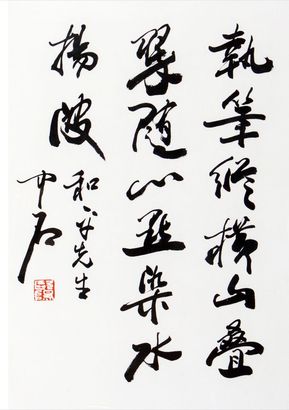 執筆縱橫山疊
翠随心點染水
揚波
和平先生
中石